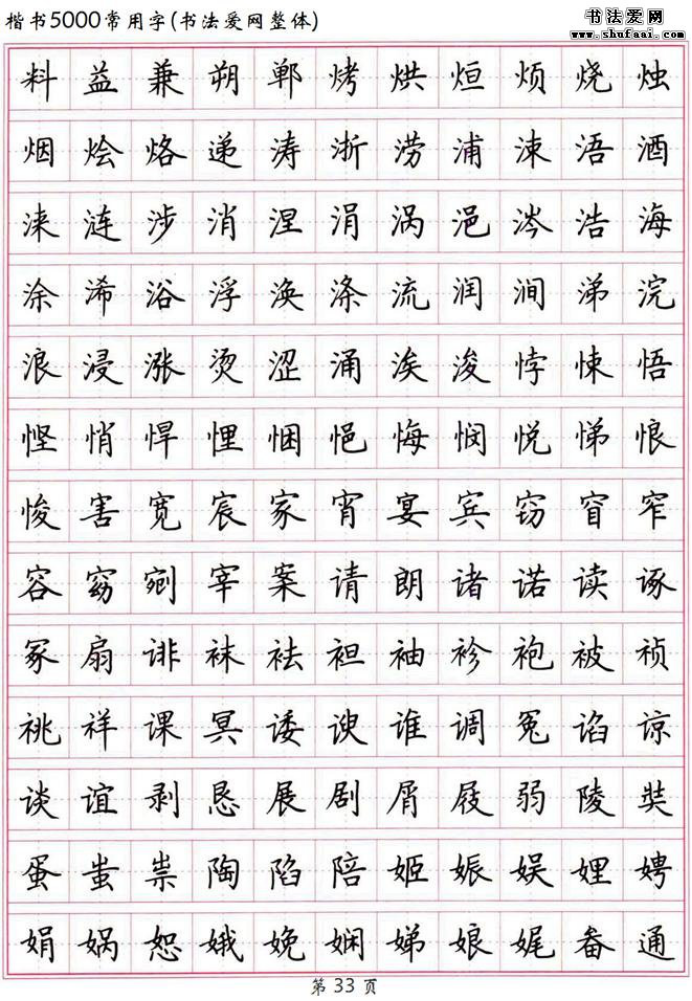 楷书5000常用字(书法爱网整体)
书法爱网
www.shufaai.com
料益兼朔郸烤烘烜烦烧烛
烟烩烙递涛浙涝浦涑浯酒
涞涟涉消涅涓涡浥涔浩海
涂浠浴浮涣涤流润涧涕浣
浪浸涨烫涩涌涘浚悖悚悟
悭悄悍悝悃悒悔悯悦悌悢
悛害宽宸家宵宴宾窃窅窄
容窈剜宰案请朗诸诺读诼
冢扇诽袜袪袒袖袗袍被祯
祧祥课冥诿谀谁调冤谄谅
谈谊剥恳展剧屑屐弱陵奘
蛋蚩祟陶陷陪姬娠娱娌娉
娟娲恕娥娩娴娣娘娓畚通
第 33 页